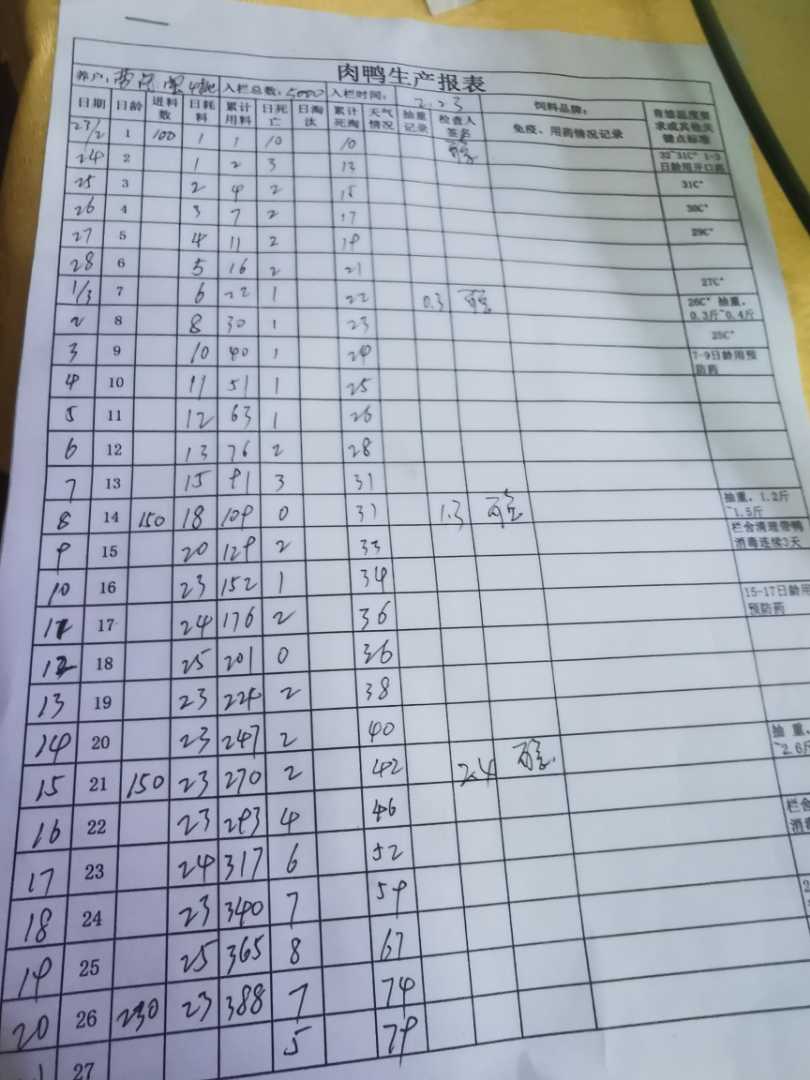 肉鸭生产报表
养户: 入栏总数:5000 入栏时间: 2.23 饲料品牌:
日期 日龄 进料数 日耗料 累计用料 日死亡 日淘汰 累计死淘 天气情况 抽重记录 检查人签名 免疫、用药情况记录 育雏温度要求或其他关键点标准
23/2 1 100 1 1 10 10 32~31C° 1-3日龄用开口药
24 2 1 2 3 13
25 3 2 4 2 15 31C°
26 4 3 7 2 17 30C°
27 5 4 11 2 19 29C°
28 6 5 16 2 21
1/3 7 6 22 1 22 0.3 27C°
2 8 8 30 1 23 26C° 抽重,0.3斤~0.4斤
3 9 10 40 1 24 25C°
4 10 11 51 1 25 7-9日龄用预防药
5 11 12 63 1 26
6 12 13 76 2 28
7 13 15 91 3 31
8 14 150 18 109 0 31 1.3 抽重,1.2斤~1.5斤
9 15 20 129 2 33 栏舍清理带鸭消毒连续3天
10 16 23 152 1 34
11 17 24 176 2 36 15-17日龄用预防药
12 18 25 201 0 36
13 19 23 224 2 38
14 20 23 247 2 40
15 21 150 23 270 2 42 2.4 抽重,~2.6斤
16 22 23 293 4 46
17 23 24 317 6 52 栏舍消毒
18 24 23 340 7 59
19 25 25 365 8 67
20 26 230 23 388 7 74
27 5 79